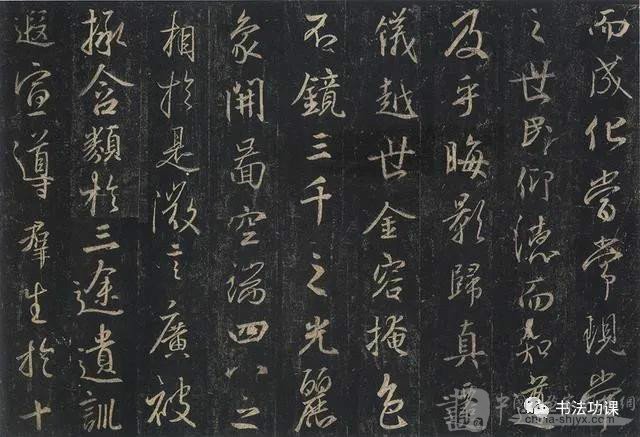 而成化當常現常
之世民仰德而知遵
及乎晦影歸真
儀越世金容掩色
不鏡三千之光麗
象開圖空端四八之
相於是微言廣被
拯含類於三途遺訓
遐宣導羣生於十
书法功课
china-shjyx.com